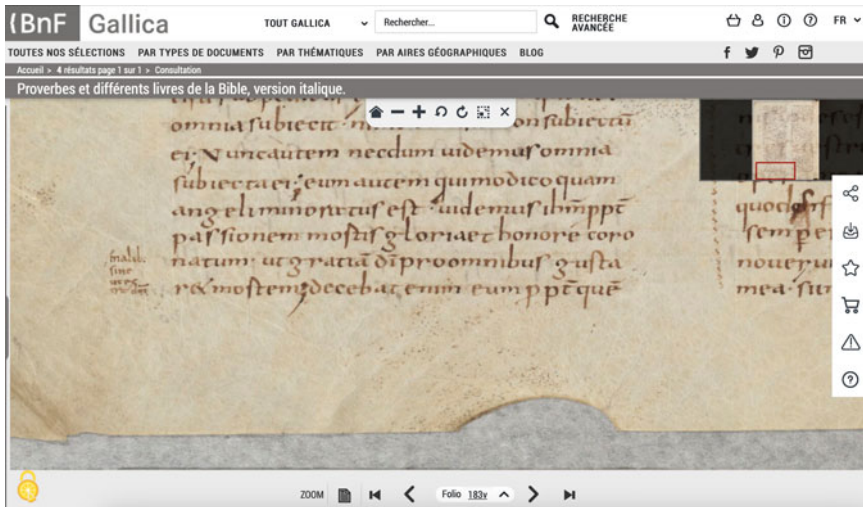 BnF Gallica TOUT GALLICA Rechercher... RECHERCHE AVANCÉE FR
TOUTES NOS SÉLECTIONS PAR TYPES DE DOCUMENTS PAR THÉMATIQUES PAR AIRES GÉOGRAPHIQUES BLOG
Accueil > 4 résultats page 1 sur 1 > Consultation
Proverbes et différents livres de la Bible, version italique.
omnia subiecit
ei· Nunc autem necdum uidemus omnia
subiecta ei; eum autem qui modico quam
angeli minoratus est· uidemus ihm ppt̄
passionem mortis gloria et honore coro
natum· ut gratiā dī pro omnibus gusta
ret mortem; decebat enim eum ppt̄ quē
in alib.
sine
quod
semper
noueru
mea·
ZOOM Folio 183v